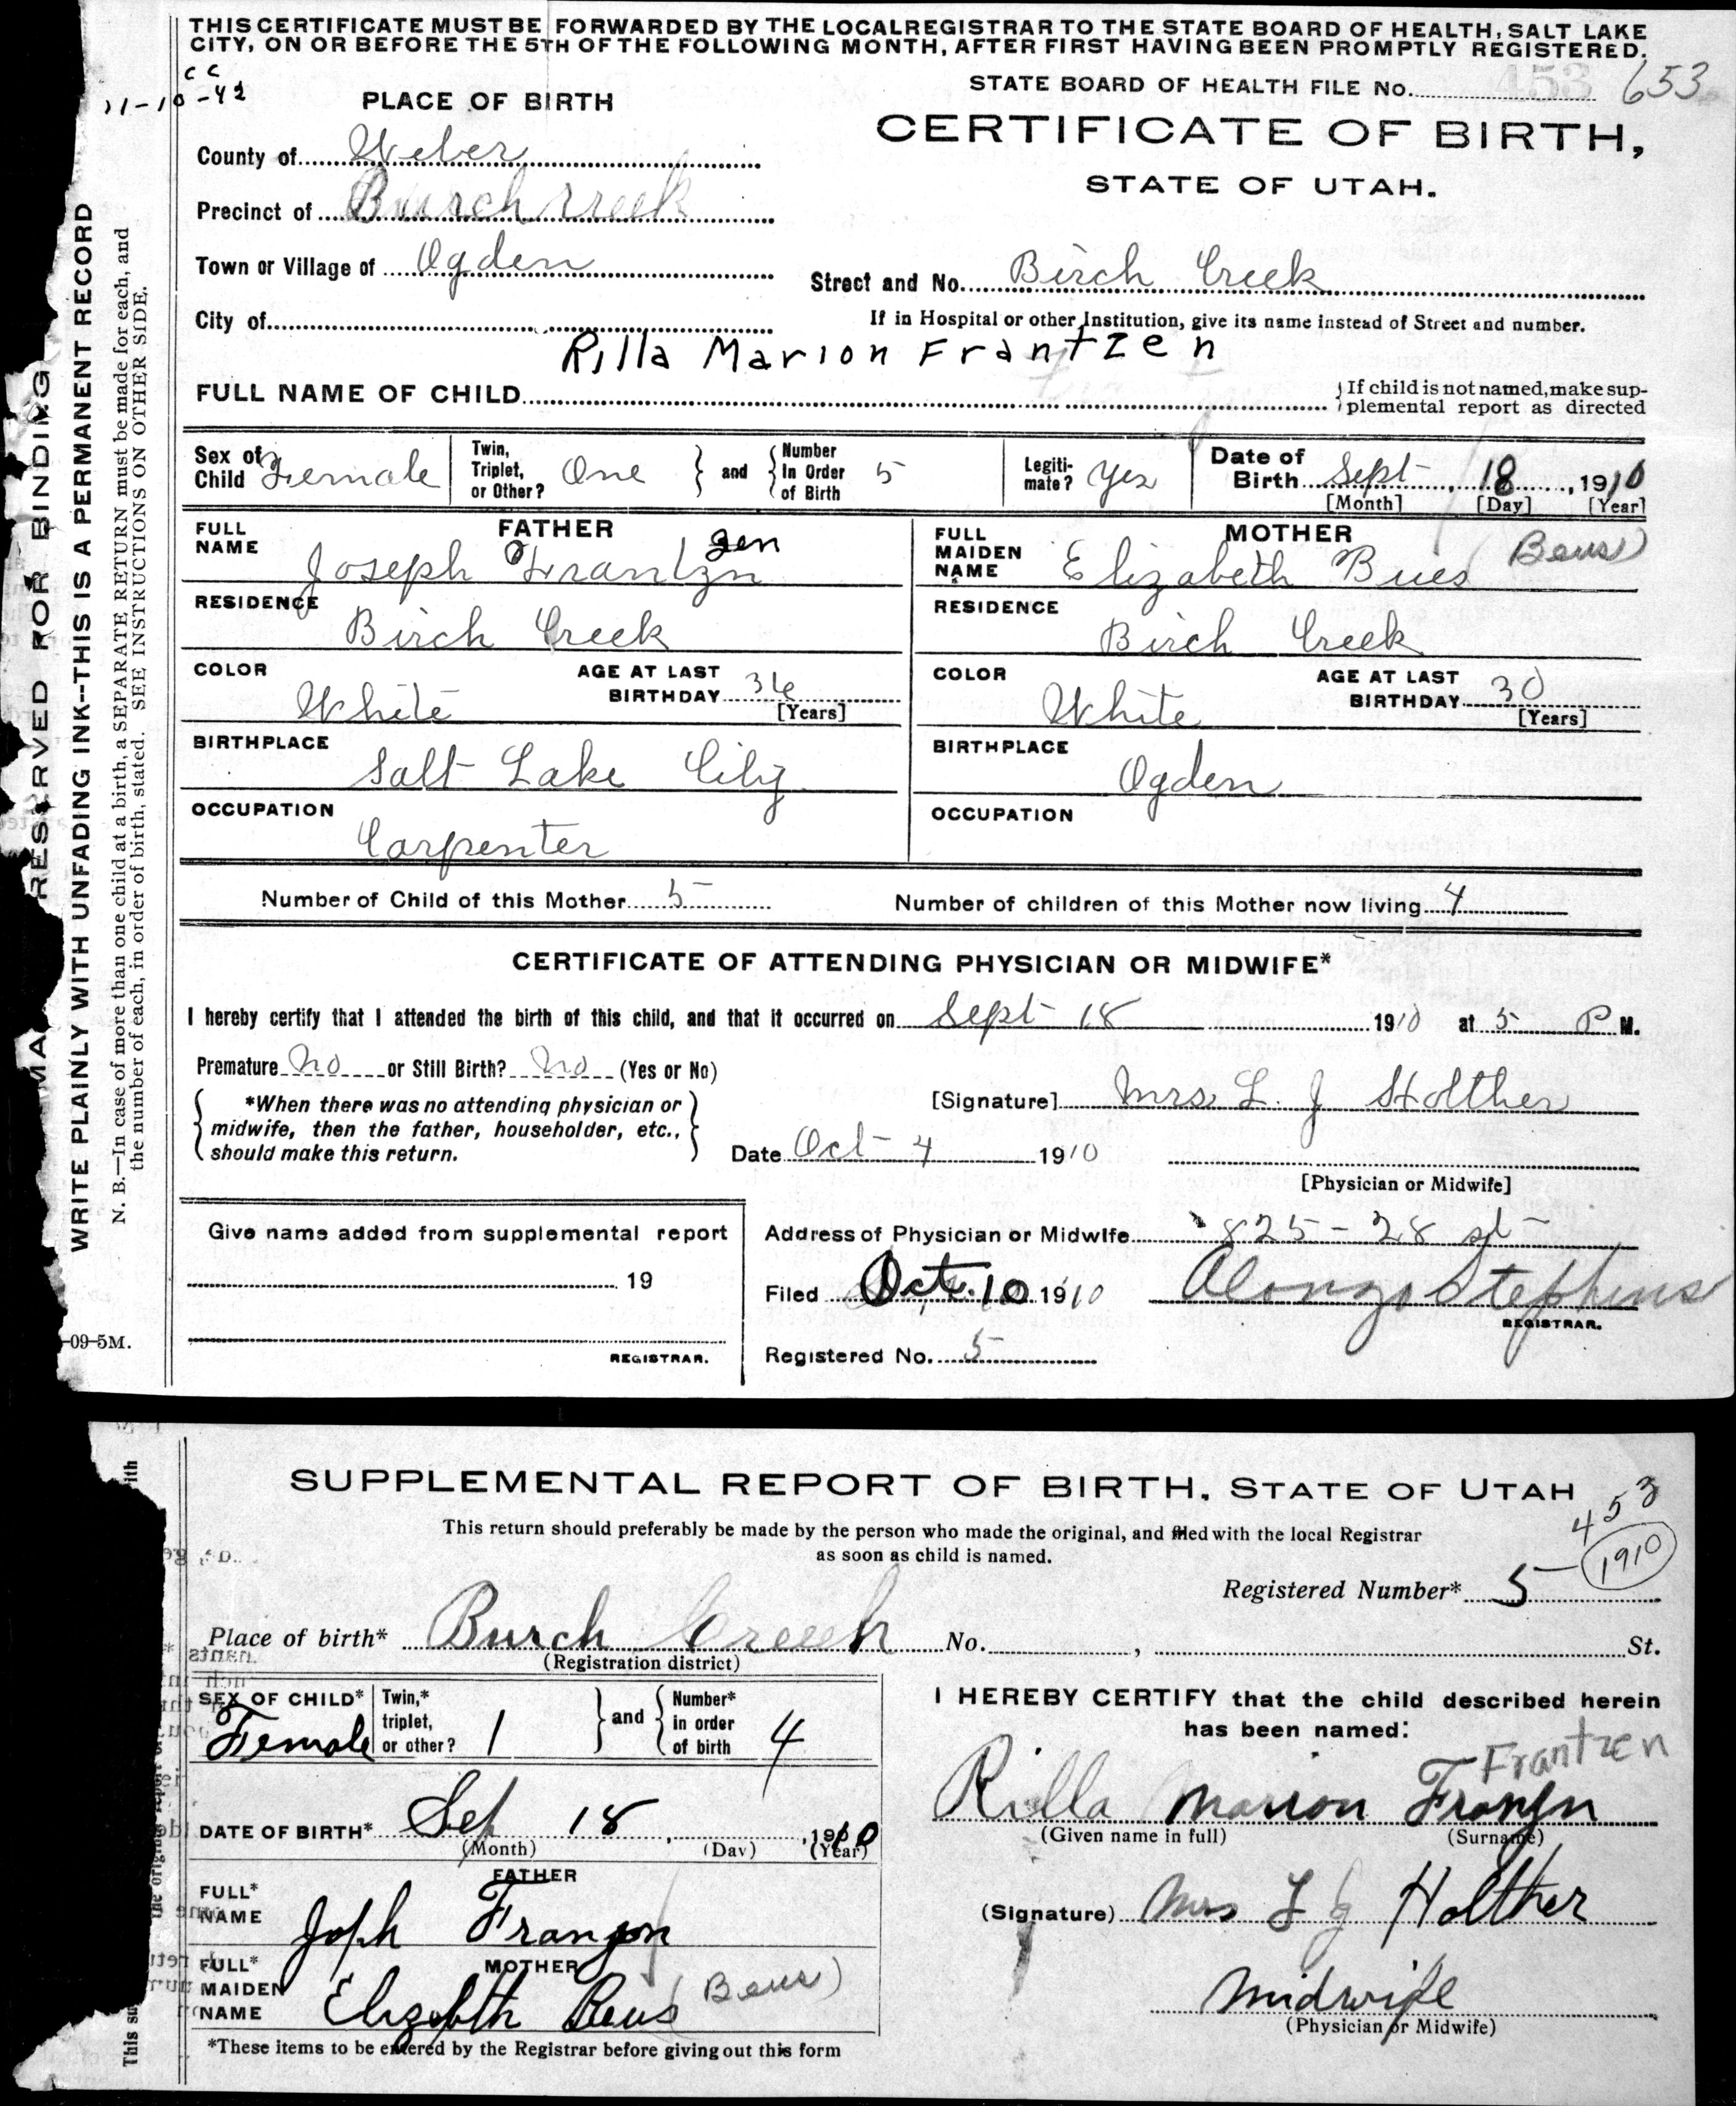 THIS CERTIFICATE MUST BE FORWARDED BY THE LOCAL REGISTRAR TO THE STATE BOARD OF HEALTH, SALT LAKE
CITY, ON OR BEFORE THE 5TH OF THE FOLLOWING MONTH, AFTER FIRST HAVING BEEN PROMPTLY REGISTERED.
CC
11-10-42
STATE BOARD OF HEALTH FILE No. 453 653
PLACE OF BIRTH
CERTIFICATE OF BIRTH,
STATE OF UTAH.
County of Weber
Precinct of Burch Creek
Town or Village of Ogden
Street and No. Birch Creek
City of
If in Hospital or other Institution, give its name instead of Street and number.
Rilla Marion Frantzen
FULL NAME OF CHILD
If child is not named, make sup-
plemental report as directed
Sex of Child Female
Twin, Triplet, or Other? One and Number In Order of Birth 5
Legiti-mate? Yes
Date of Birth Sept 18, 1910
[Month] [Day] [Year]
FATHER
FULL NAME Joseph Frantzn zen
MOTHER
FULL MAIDEN NAME Elizabeth Bues Beus)
RESIDENCE Birch Creek
RESIDENCE Birch Creek
COLOR White
AGE AT LAST BIRTHDAY 36 [Years]
COLOR White
AGE AT LAST BIRTHDAY 30 [Years]
BIRTHPLACE Salt Lake City
BIRTHPLACE Ogden
OCCUPATION Carpenter
OCCUPATION
Number of Child of this Mother 5
Number of children of this Mother now living 4
CERTIFICATE OF ATTENDING PHYSICIAN OR MIDWIFE*
I hereby certify that I attended the birth of this child, and that it occurred on Sept 18 1910 at 5 P M.
Premature No or Still Birth? No (Yes or No)
*When there was no attending physician or
midwife, then the father, householder, etc.,
should make this return.
[Signature] Mrs. L. J Holther
Date Oct 4 1910
[Physician or Midwife]
Give name added from supplemental report
19
REGISTRAR.
Address of Physician or Midwife 825-28 st
Filed Oct. 10 1910 Alonzo Stephens
REGISTRAR.
Registered No. 5
-09-5M.
RESERVED FOR BINDING
WRITE PLAINLY WITH UNFADING INK--THIS IS A PERMANENT RECORD
N. B.—In case of more than one child at a birth, a SEPARATE RETURN must be made for each, and
the number of each, in order of birth, stated. SEE INSTRUCTIONS ON OTHER SIDE.
SUPPLEMENTAL REPORT OF BIRTH, STATE OF UTAH
453
1910
This return should preferably be made by the person who made the original, and filed with the local Registrar
as soon as child is named.
Registered Number* 5
Place of birth* Burch Creek No. , St.
(Registration district)
SEX OF CHILD* Female
Twin,* triplet, or other? 1 and Number* in order of birth 4
I HEREBY CERTIFY that the child described herein
has been named:
Frantzen
Rilla Marion Franzn
(Given name in full) (Surname)
DATE OF BIRTH* Sep 18, 1910
(Month) (Day) (Year)
FATHER
FULL* NAME Joph Franzon
(Signature) Mrs L J Holther
MOTHER
FULL* MAIDEN NAME Elizebth Beus (Beus)
Midwife
(Physician or Midwife)
*These items to be entered by the Registrar before giving out this form